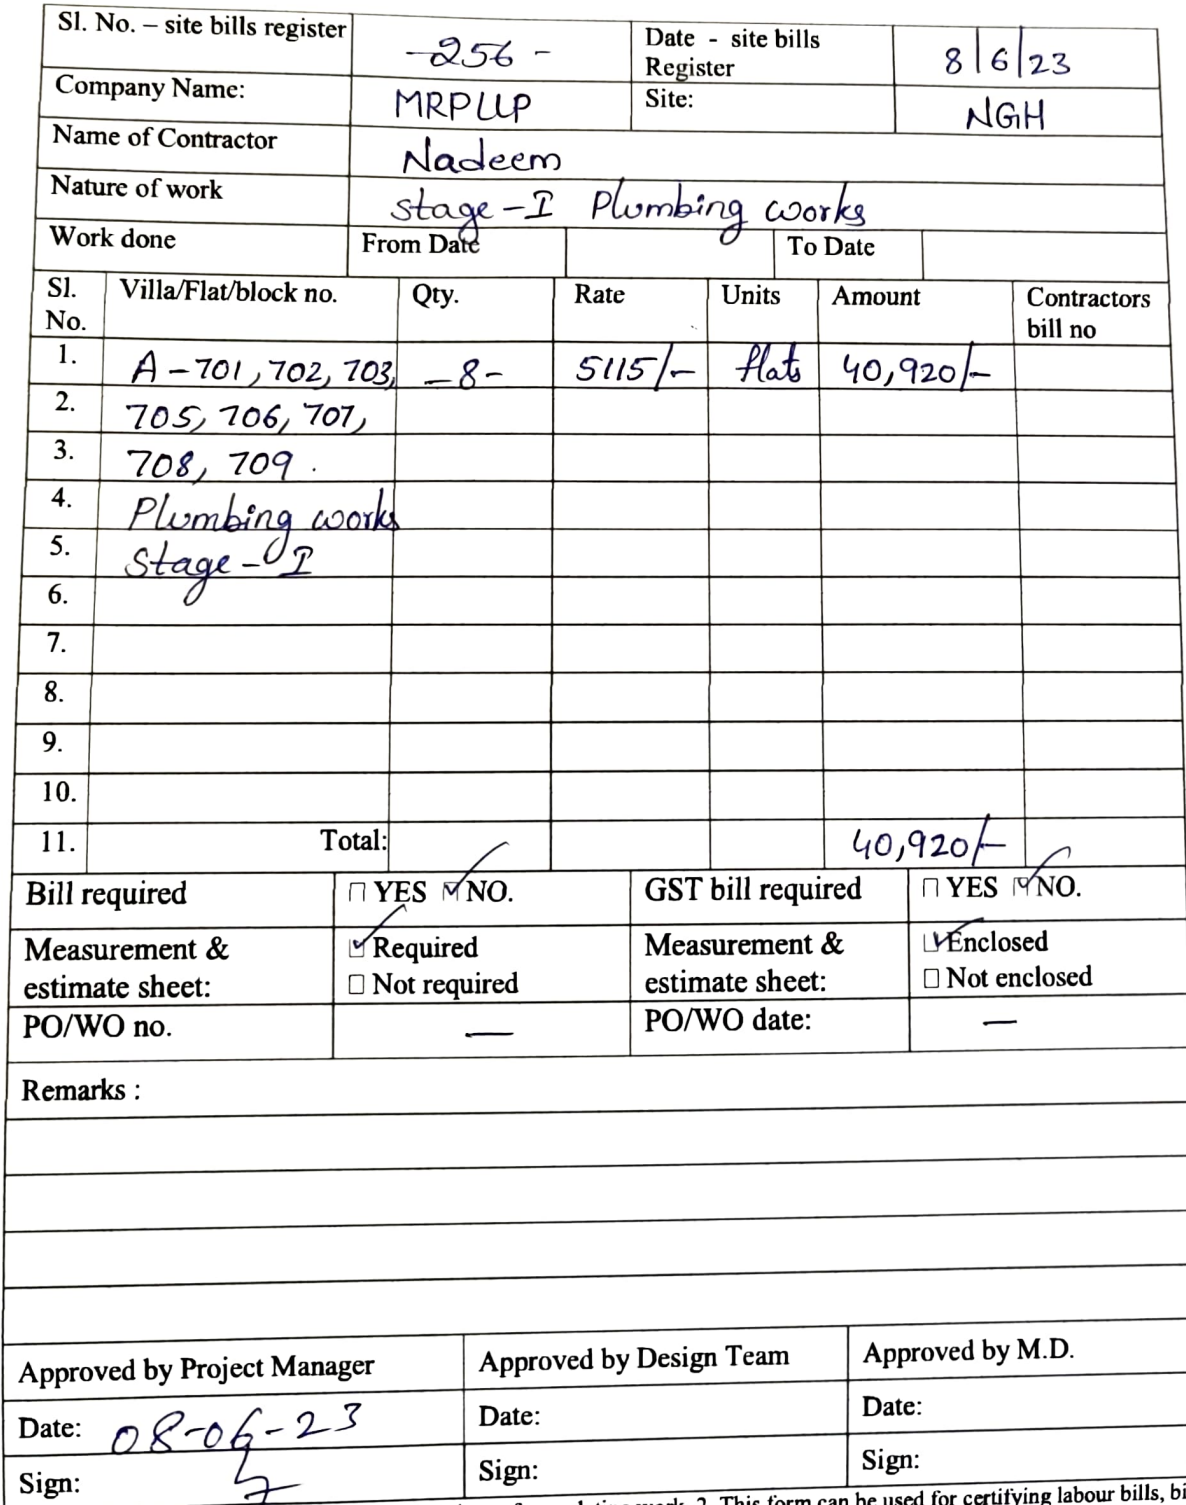 Sl. No. – site bills register -256- Date - site bills Register 8/6/23
Company Name: MRPLLP Site: NGH
Name of Contractor Nadeem
Nature of work Stage-I Plumbing works
Work done From Date To Date
Sl. No. Villa/Flat/block no. Qty. Rate Units Amount Contractors bill no
1. A-701, 702, 703, -8- 5115/- flats 40,920/-
2. 705, 706, 707,
3. 708, 709.
4. Plumbing works
5. Stage-I
6.
7.
8.
9.
10.
11. Total: 40,920/-
Bill required □ YES ☑ NO. GST bill required □ YES ☑ NO.
Measurement & estimate sheet: ☑ Required Measurement & estimate sheet: ☑ Enclosed
□ Not required □ Not enclosed
PO/WO no. — PO/WO date: —
Remarks :
Approved by Project Manager Approved by Design Team Approved by M.D.
Date: 08-06-23 Date: Date:
Sign: Sign: Sign:
work. 2. This form can be used for certifying labour bills,